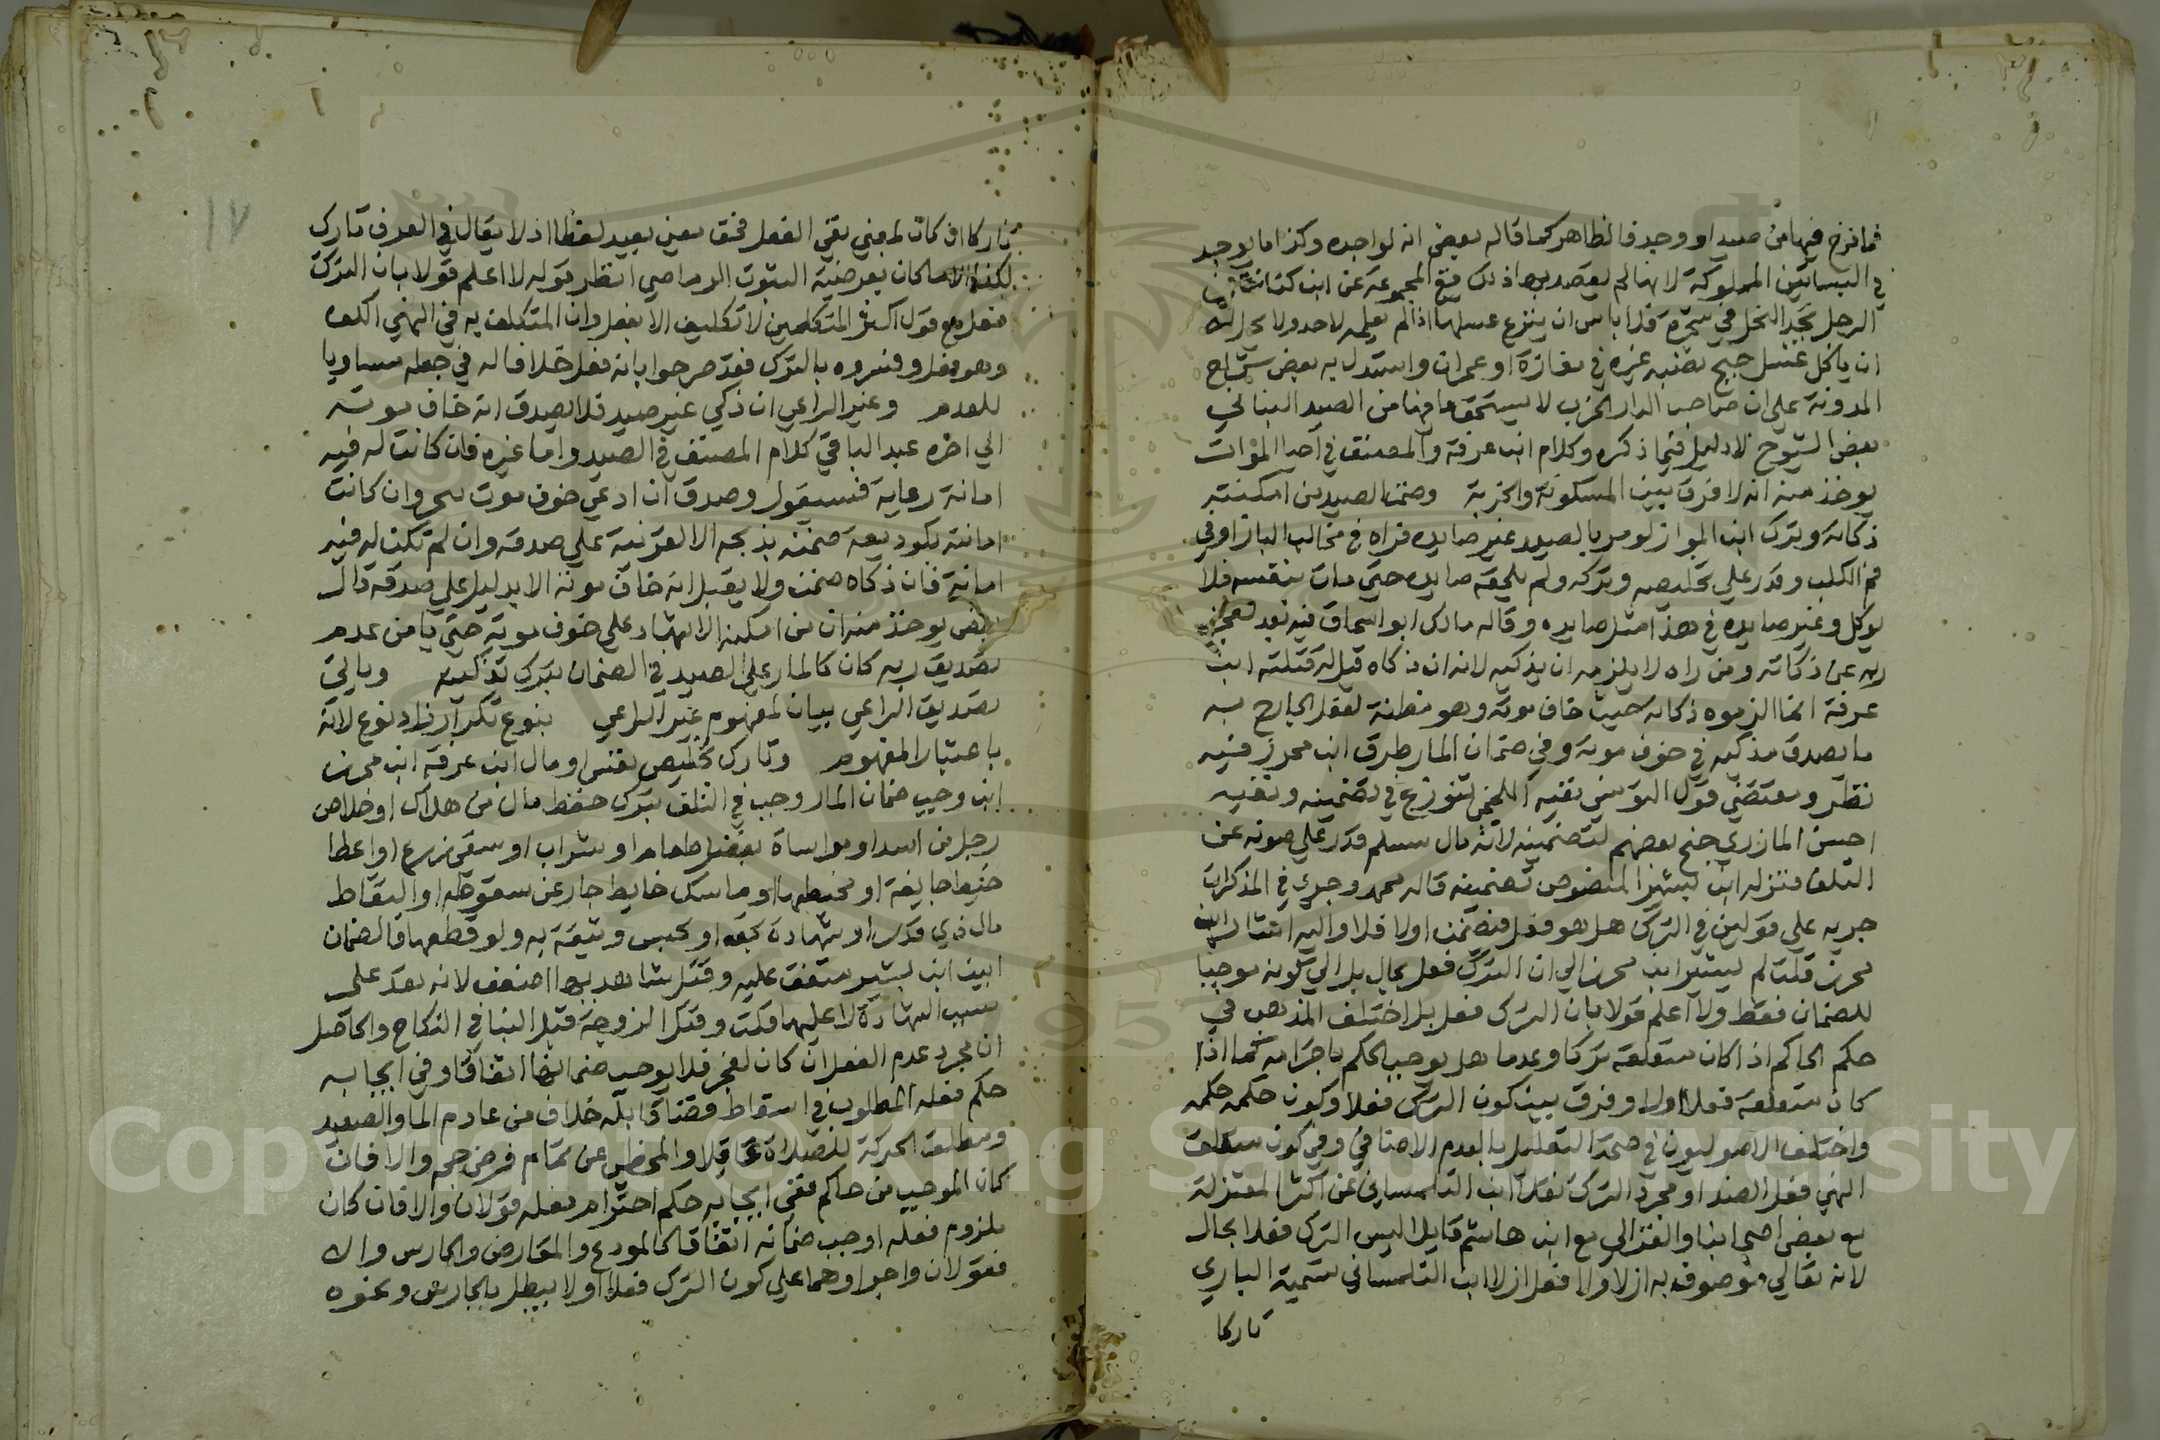 فما فرخ فيها من صيد او وحيد فالظاهر كما قاله بعض انه لواجده وكذا ما يوجد
في البساتين المملوكة لانها لم يقصد بها ذلك فمع المجموعة عن ابن كنانة في
الرجل يجد النخل في شجرة فلا باس ان ينزع عسلها اذا لم يعلمه لاحد ولا يحل له
ان ياكل عسل جبح نصبه غيره في مفازة او عمران واستدل به بعض شراح
المدونة علي ان صاحب الدار الخرب لا يستحق ما فيها من الصيد البناني
بعض الشيوخ لا دليل فيما ذكره وكلام ابن عرفة والمصنف في احيا الموات
يوخذ منه انه لا فرق بين المسكونة والخربة وضمن الصيد من امكنته
ذكاته وترك ابن المواز لو مر بالصيد غير صايده فراه في مخالب الباز او في
فم الكلب وقدر علي تخليصه وتركه ولم يلحقه صايده حتي مات بنفسه فلا
يوكل وغير صايده في هذا مثل صايده وقاله مالك ابو اسحاق فيه بعد لعجز
ربه عن ذكاته ومن راه لا يلزمه ان يذكيه لانه ان ذكاه قيل له قتلته ابن
عرفة انما الزموه ذكاته حيث خاف موته وهو مظنة لفعل الجارح به
ما يصدق مذكيه في خوف موته وفي ضمان المار طرق ابن محرز فيه
نظر ومقتضي قول التونسي نفيه اللخمي يتنوزع في تضمينه ونفيه
احسن المازري جنح بعضهم لتضمينه لانه مال مسلم قدر علي صونه عن
التلف فتركه ابن بشير المنصوص تضمينه قاله محمد وجري في المذكرات
جريه علي قولين في الترك هل هو فعل فيضمن اولا فلا واليه اشار ابن
محرز قلت لم يشر ابن محرز الي ان الترك فعل بحال بل الي كونه موجبا
للضمان فقط ولا اعلم قولا بان الترك فعل بل اختلف المذهب في
حكم الحاكم اذا كان متعلقه تركا وعدما هل يوجب الحكم باحترامه كما اذا
كان متعلقه فعلا اولا وفرق بين كون الترك فعلا وكون حكمه حكمه
واختلف الاصوليون في صحة التعليل بالعدم الاضافي وفي كون متعلق
النهي فعل الضد او مجرد الترك نقل ابن التلمساني عن اكثر المعتزلة
مع بعض اصحابنا والغزالي مع ابن هاشم قايلا ليس الترك فعلا بحال
لانه تعالي موصوف به ازلا ولا فعل ازلا ابن التلمساني تسمية الباري
تاركا
١٧
تاركا ان كان لمعني بقي الفعل فحق بعين بعيد لفظا اذ لا يقال في العرف تارك
لكذا الا ما كان بعرضية الثبوت الرماصي انظر قوله لا اعلم قولا بان الترك
فعل مع قول اكثر المتكلمين لا تكليف الا بفعل وان المتكلف به في النهي الكف
وهو فعل وفسروه بالترك فقد صرحوا بانه فعل خلافا له في جعله مساويا
للعدم وغير الراعي ان ذكي غير صيد فلا يصدق انه خاف موته
الي اخره عبد الباقي كلام المصنف في الصيد واما غيره فان كانت له فيه
امانة رعاية فسيقول وصدق ان ادعي خوف موت لنحر وان كانت
امانته كوديعة ضمنه بذبحه الا لقرينة علي صدقه وان لم تكن له فيه
امانة فان ذكاه ضمن ولا يقبل انه خاف موته الا بدليل علي صدقه قال
بعض يوخذ منه ان من امكنه الاشهاد علي خوف موته حتي يامن عدم
تصديق ربه كان كالمار علي الصيد في الضمان بترك تذكيته وياتي
تصديق الراعي بيان لمفهوم غير الراعي بنوع تكرار زاد نوع لانه
باعتبار المفهوم وتارك تخليص نفس او مال ابن عرفة ابن محرز
ابن وهب ضمان المار وجب في التلف بترك حفظ مال من هلاك او خلاص
رجل من اسد او مواساة بفضل طعام او شراب او سقي زرع او اعطا
خيط جايفة او مخيطها او ماسك حايط جار عن سقوطه او التقاط
مال ذي قدر او شهادة بحق او بحبس وثيقة به ولو قطعها فالضمان
ابين ابن بشير متفق عليه وقتل شاهديها اضعف لانه تعد علي
سبب الشهادة لا عليها فكقت وقتل الزوجة قبل البنا في النكاح والحاصل
ان مجرد عدم الفعل ان كان لعجز فلا يوجب ضمانها اتفاقا وفي ايجابه
حكم فعله المطلوب في اسقاط قضا قابله خلاف من عادم الما والصعيد
ومطلق الحركة للصلاة عاقلا والمحظر عن تمام فرض حجه والا فان
كان الموجب من حاكم ففي ايجابه حكم احترام فعله قولان والا فان كان
ملزوم فعله اوجب ضمانه اتفاقا كالمودع والمقارض والحارس والا
فقولان واجراوهما علي كون الترك فعلا اولا يبطل بالحارس ونحوه